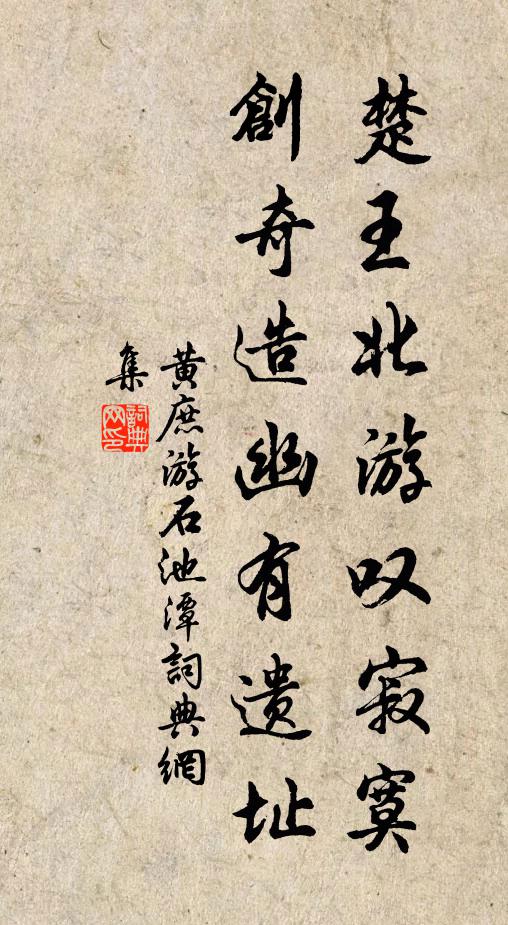 楚王北游叹寂寞
創奇造幽有遗址
黄庶游石池潭詞典網
集
詞典
网印